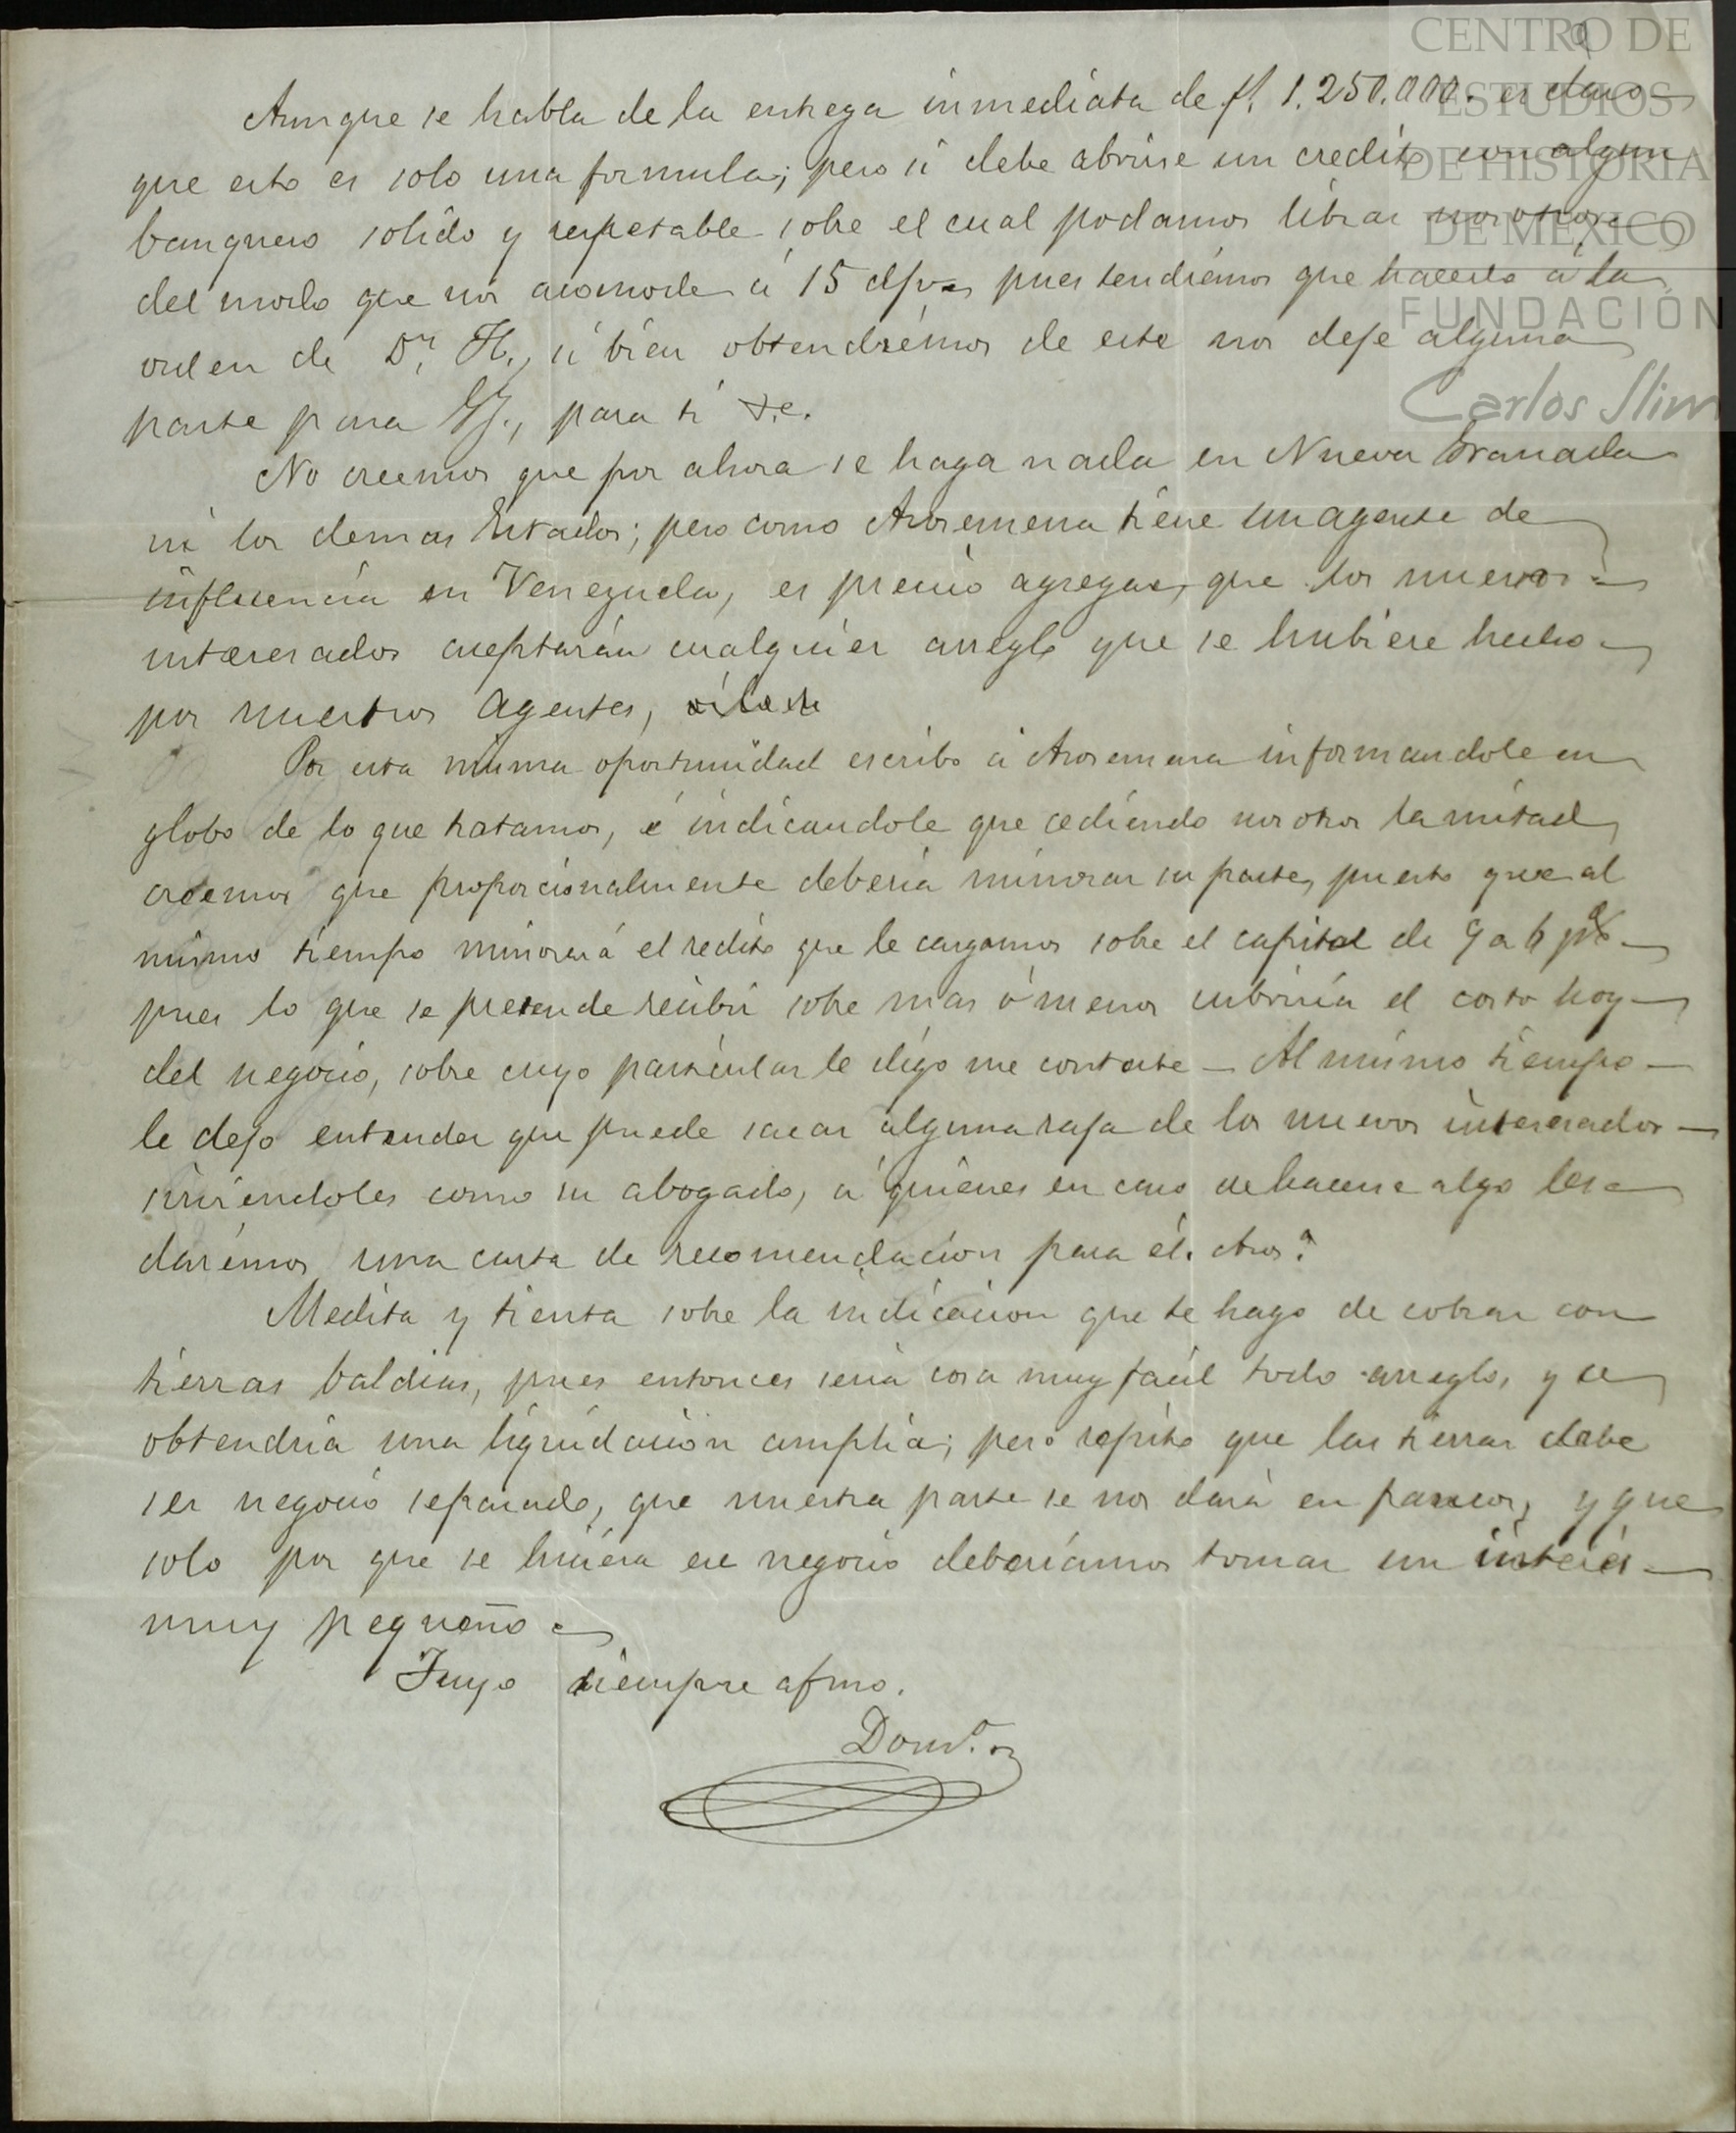 CENTRO DE
ESTUDIOS
DE HISTORIA
DE MEXICO
FUNDACIÓN
Carlos Slim
Aunque se habla de la entrega inmediata de f. 1.250.000. es claro
que esto es solo una formula; pero si debe abrirse un credito con algun
banquero solido y respetable sobre el cual podamos librar nosotros
del modo que nos acomode á 15 d/v. pues tendrémos que hacerlo á la
orden de Dn. H., si bien obtendrémos de este nos deje alguna
parte para G., para ti &c.
No creemos que por ahora se haga nada en Nueva Granada
ni los demas Estados; pero como Arosemena tiene un agente de
influencia en Venezuela, es preciso agregar, que los nuevos
interesados aceptarán cualquier arreglo que se hubiere hecho
por nuestros agentes,
Por esta misma oportunidad escribo á Arosemena informandole en
globo de lo que tratamos, é indicandole que cediendo nosotros la mitad,
creemos que proporcionalmente deberia minorar su parte, puesto que al
mismo tiempo minorará el redito que le cargamos sobre el capital de 9 a 6 p%
pues lo que se pretende recibir sobre mas ó menos cubriria el costo hoy
del negocio, sobre cuyo particular le digo me conteste — Al mismo tiempo
le dejo entender que puede sacar alguna raja de los nuevos interesados
sirviendoles como su abogado, á quienes en caso de hacerse algo les
darémos una carta de recomendacion para él. Aros.a
Medita y tienta sobre la indicacion que te hago de cobrar con
tierras baldias, pues entonces seria cosa muy facil todo arreglo, y se
obtendria una liquidacion amplia; pero repito que las tierras debe
ser negocio separado, que nuestra parte se nos dará en francos, y que
solo por que se hiciera ese negocio deberíamos tomar un interés
muy pequeño
Tuyo siempre afmo.